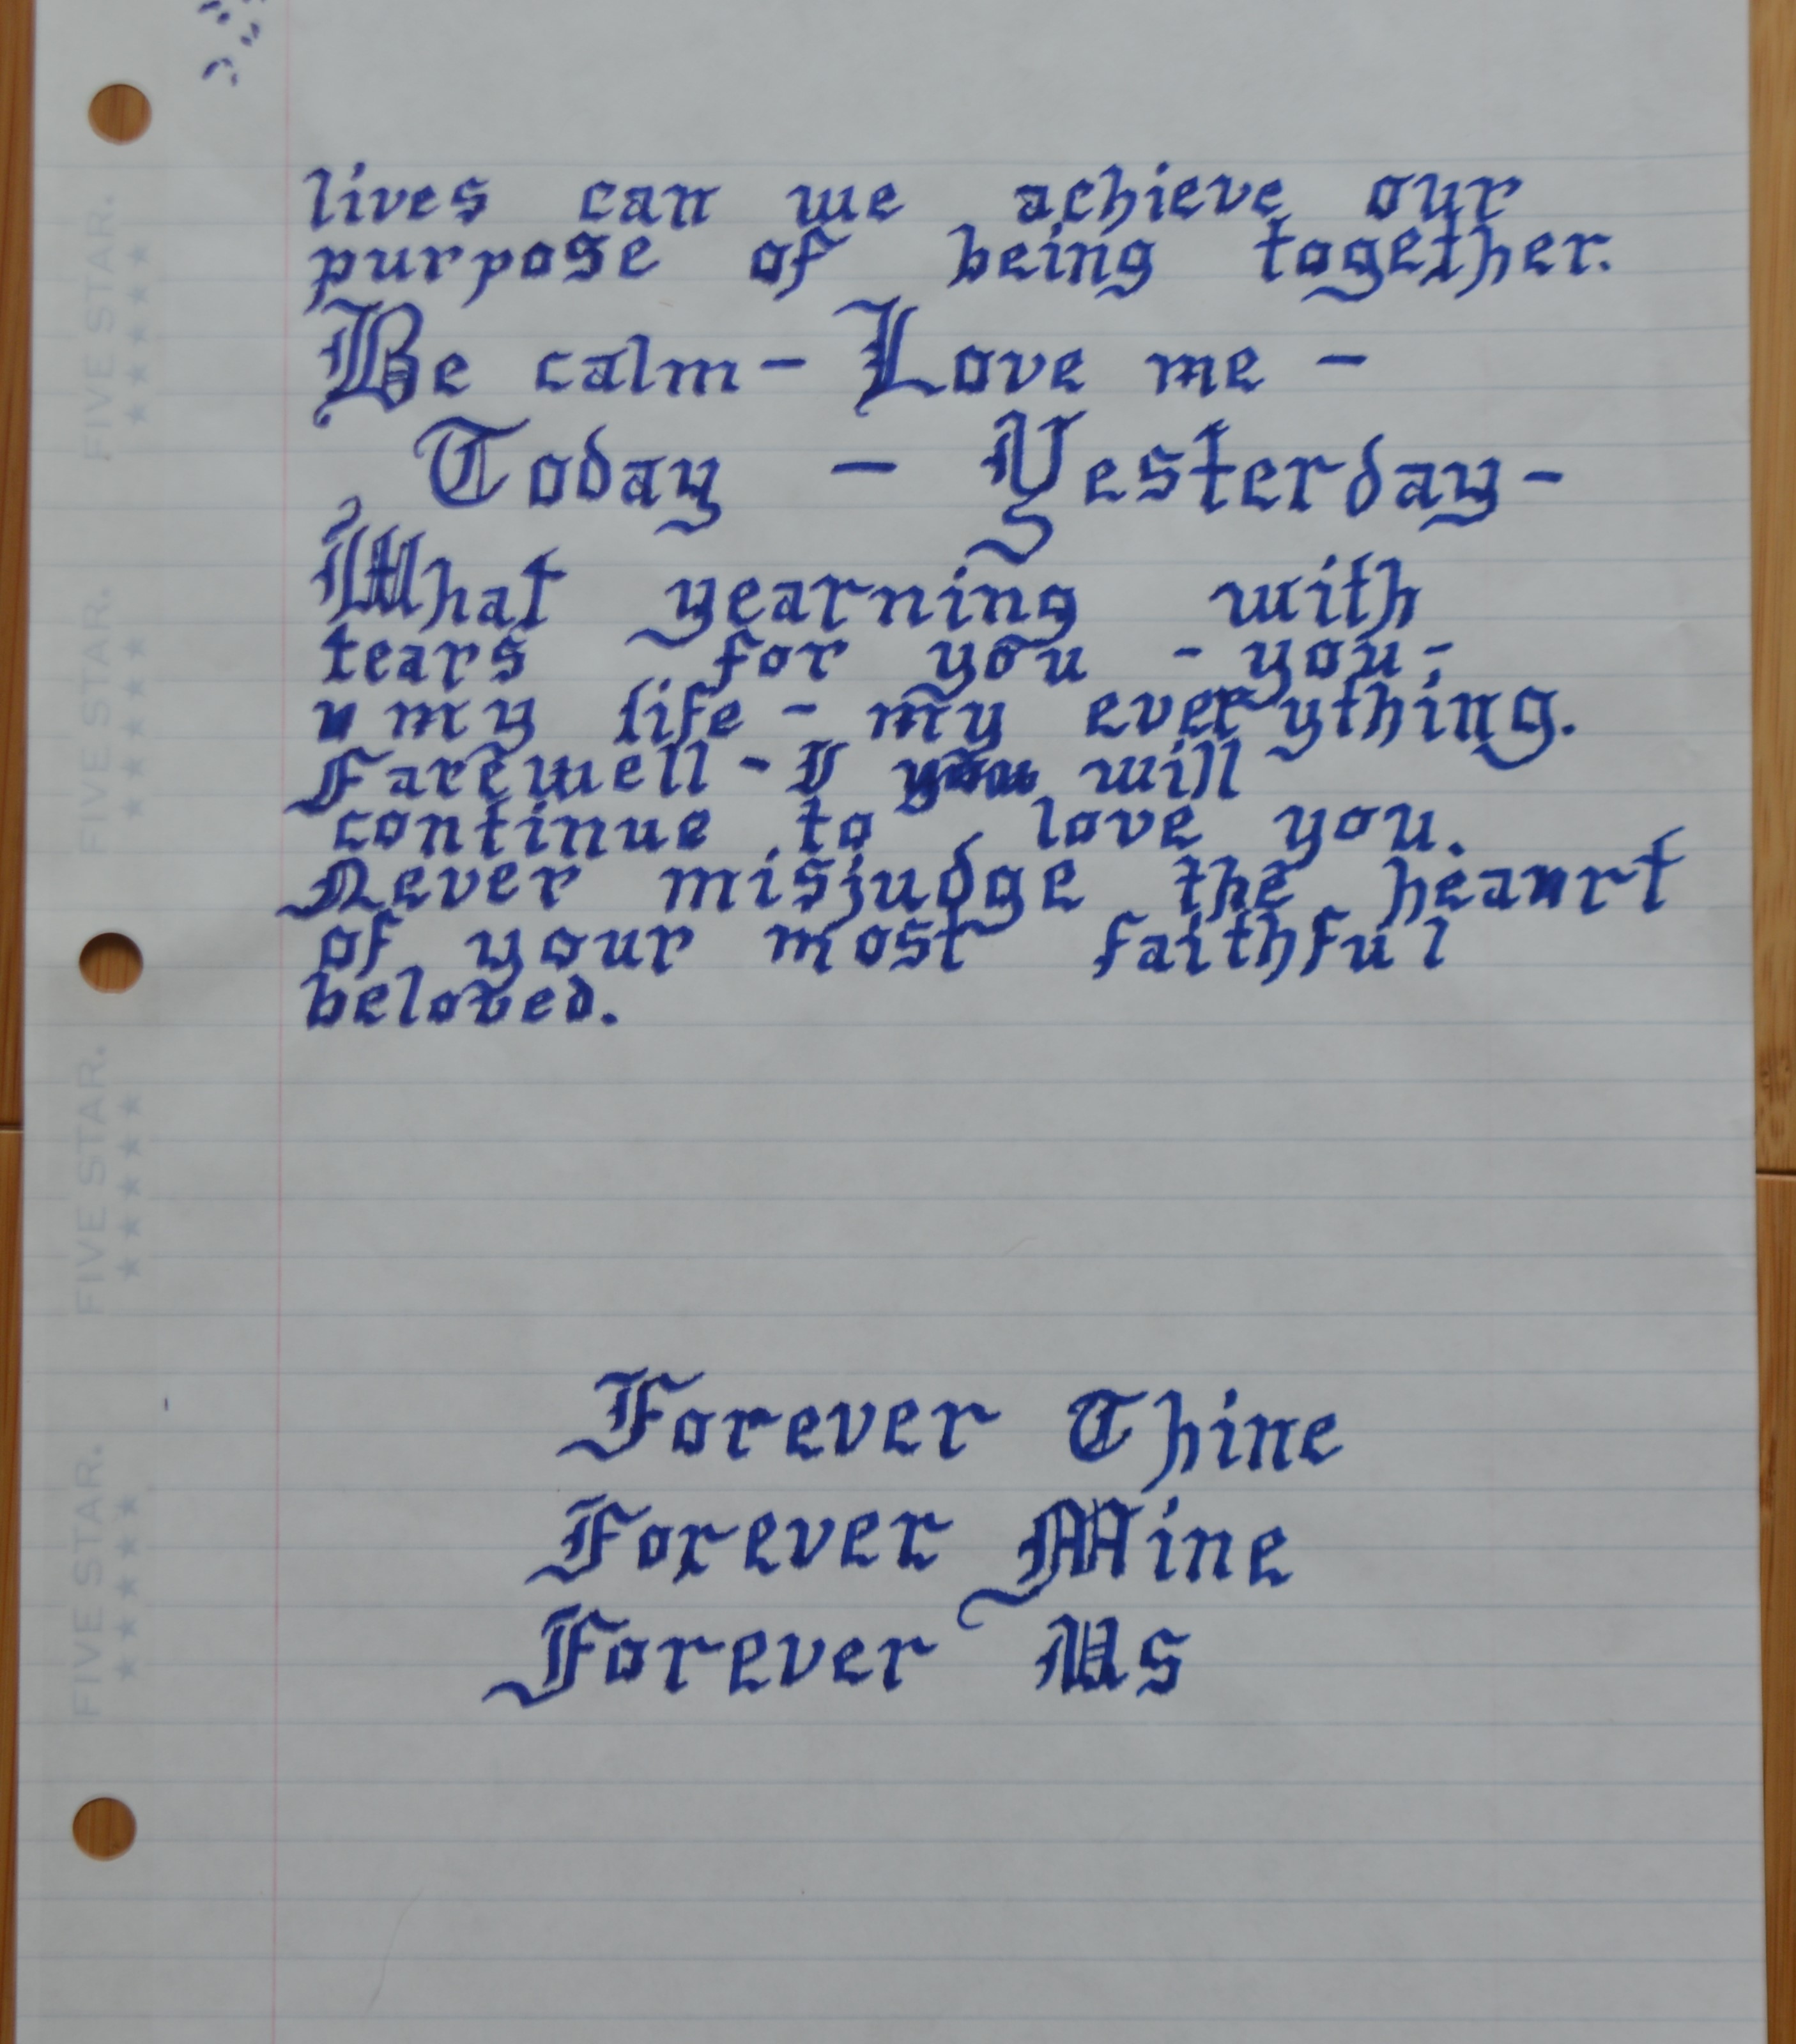 lives can we achieve our
purpose of being together.
Be calm - Love me -
Today - Yesterday -
What yearning with
tears for you - you -
my life - my everything.
Farewell - I will
continue to love you.
Never misjudge the heanrt
of your most faithful
beloved.
Forever Thine
Forever Mine
Forever Us
FIVE STAR.
FIVE STAR.
FIVE STAR.
FIVE STAR.